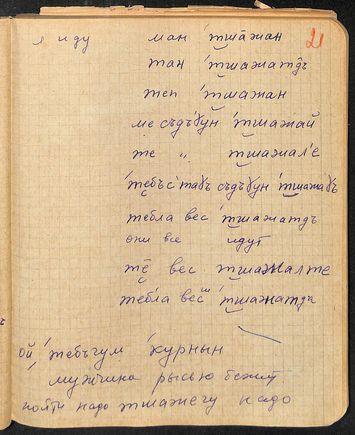 21
я иду ман ′тшажан
тан ′тшажатдъ
теп ′тшажан
ме съдъɣун ′тшажай
те „ тшажал'е
′тебъс'таɣъ съдъɣун ′тшажаɣъ
тебла вес ′тшажатдъ
они все идут
те вес тшажалте
тебла вес ′тшажатда
ой ′тебъгум ′курнын
мужчина рысью бежит
пойти надо тшажегу надо